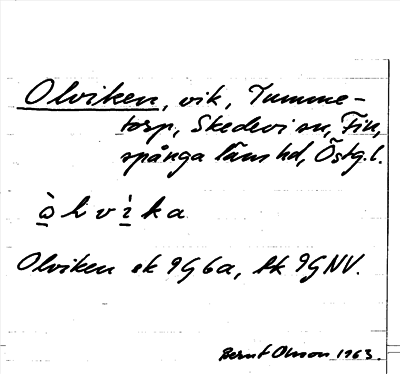 Olviken, vik, Tumme-
torp, Skedevi sn, Fin,
spånga läns hd, Östg. l.
ὰ l v ì k a
Olviken ek 9G6a, tk 9GNV.
Bernt Olsson 1963.